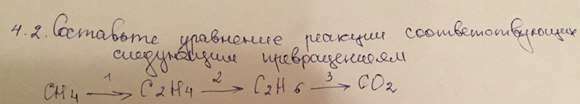 4.2. Составьте уравнение реакции соответствующих
следующим превращениям
CH4 —1→ C2H4 —2→ C2H6 —3→ CO2